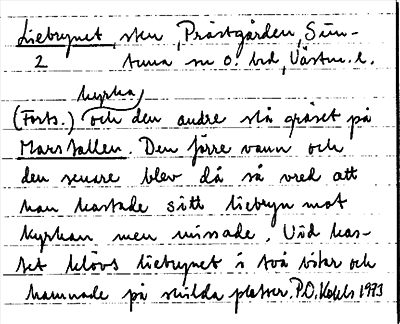 Liebrynet, sten, Prästgården, Sun-
2 tuna sn o. hd, Västm. l.
kyrka
(Forts.) och den andre slå gräset på
Marstallen. Den förre vann och
den senare blev då så vred att
han kastade sitt liebryn mot
kyrkan men missade. Vid kas-
tet klövs liebrynet i två bitar och
hamnade på skilda platser. P.O. 1973